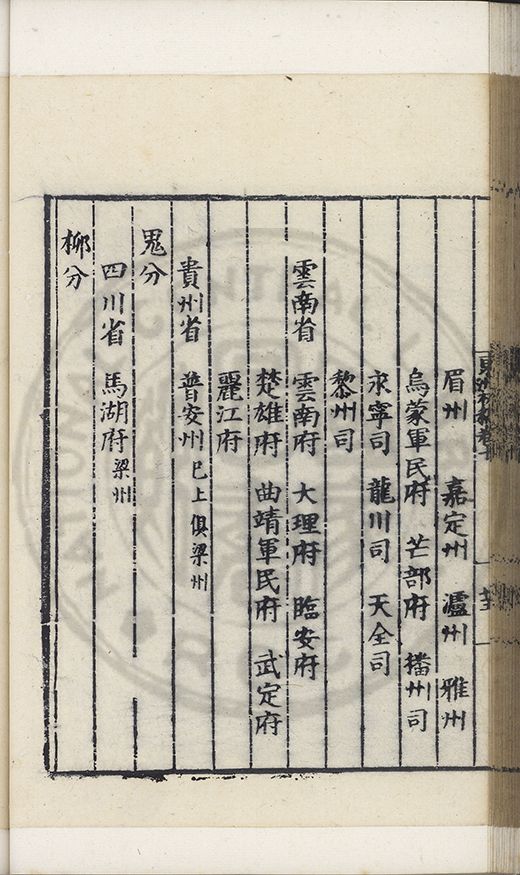 眉州 嘉定州 瀘州 雅州
烏蒙軍民府 芒部府 播州司
永寧司 龍川司 天全司
黎州司
雲南省 雲南府 大理府 臨安府
楚雄府 曲靖軍民府 武定府
麗江府
貴州省 普安州 已上俱梁州
鬼分
四川省 馬湖府 梁州
柳分